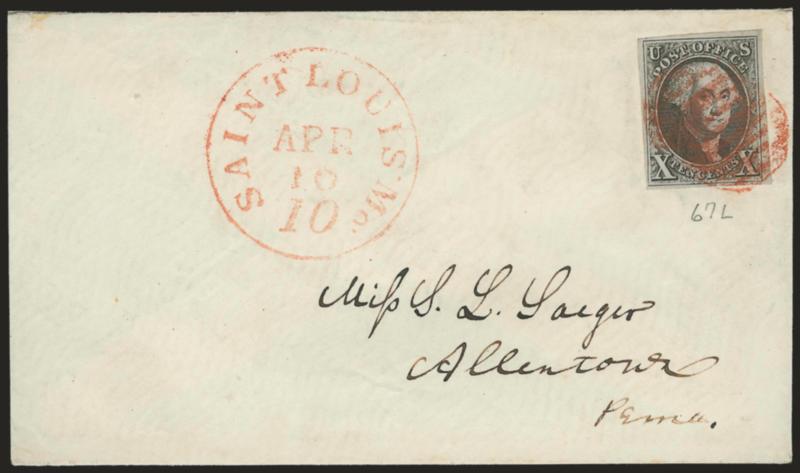 SAINT LOUIS Mo.
APR
10
10
U S
POST OFFICE
X TEN CENTS X
67L
Miss S. L. Saeger
Allentown
Penna.